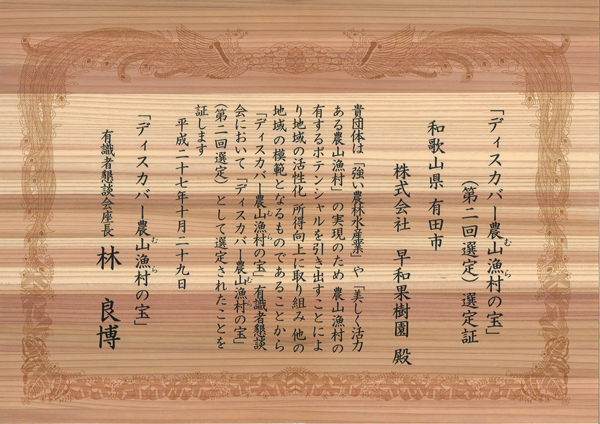 「ディスカバー農山漁村の宝」
（第二回選定）選定証
和歌山県 有田市
株式会社 早和果樹園 殿
貴団体は「強い農林水産業」や「美しく活力
ある農山漁村」の実現のため 農山漁村の
有するポテンシャルを引き出すことによ
り地域の活性化 所得向上に取り組み 他の
地域の模範となるものであることから
「ディスカバー農山漁村の宝」有識者懇談
会において「ディスカバー農山漁村の宝」
（第二回選定）として選定されたことを
証します
平成二十七年十月二十九日
「ディスカバー農山漁村の宝」
有識者懇談会座長 林 良博